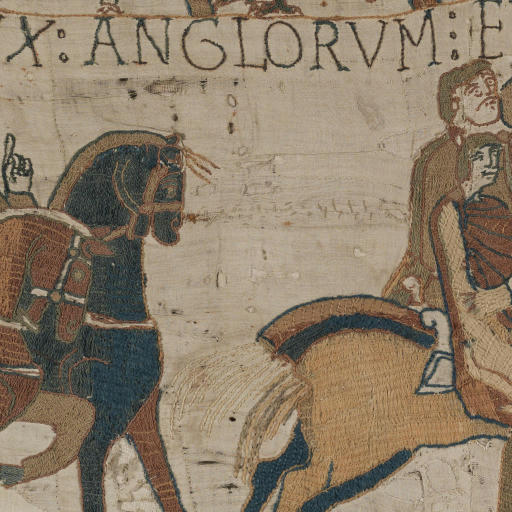 X: ANGLORVM: E